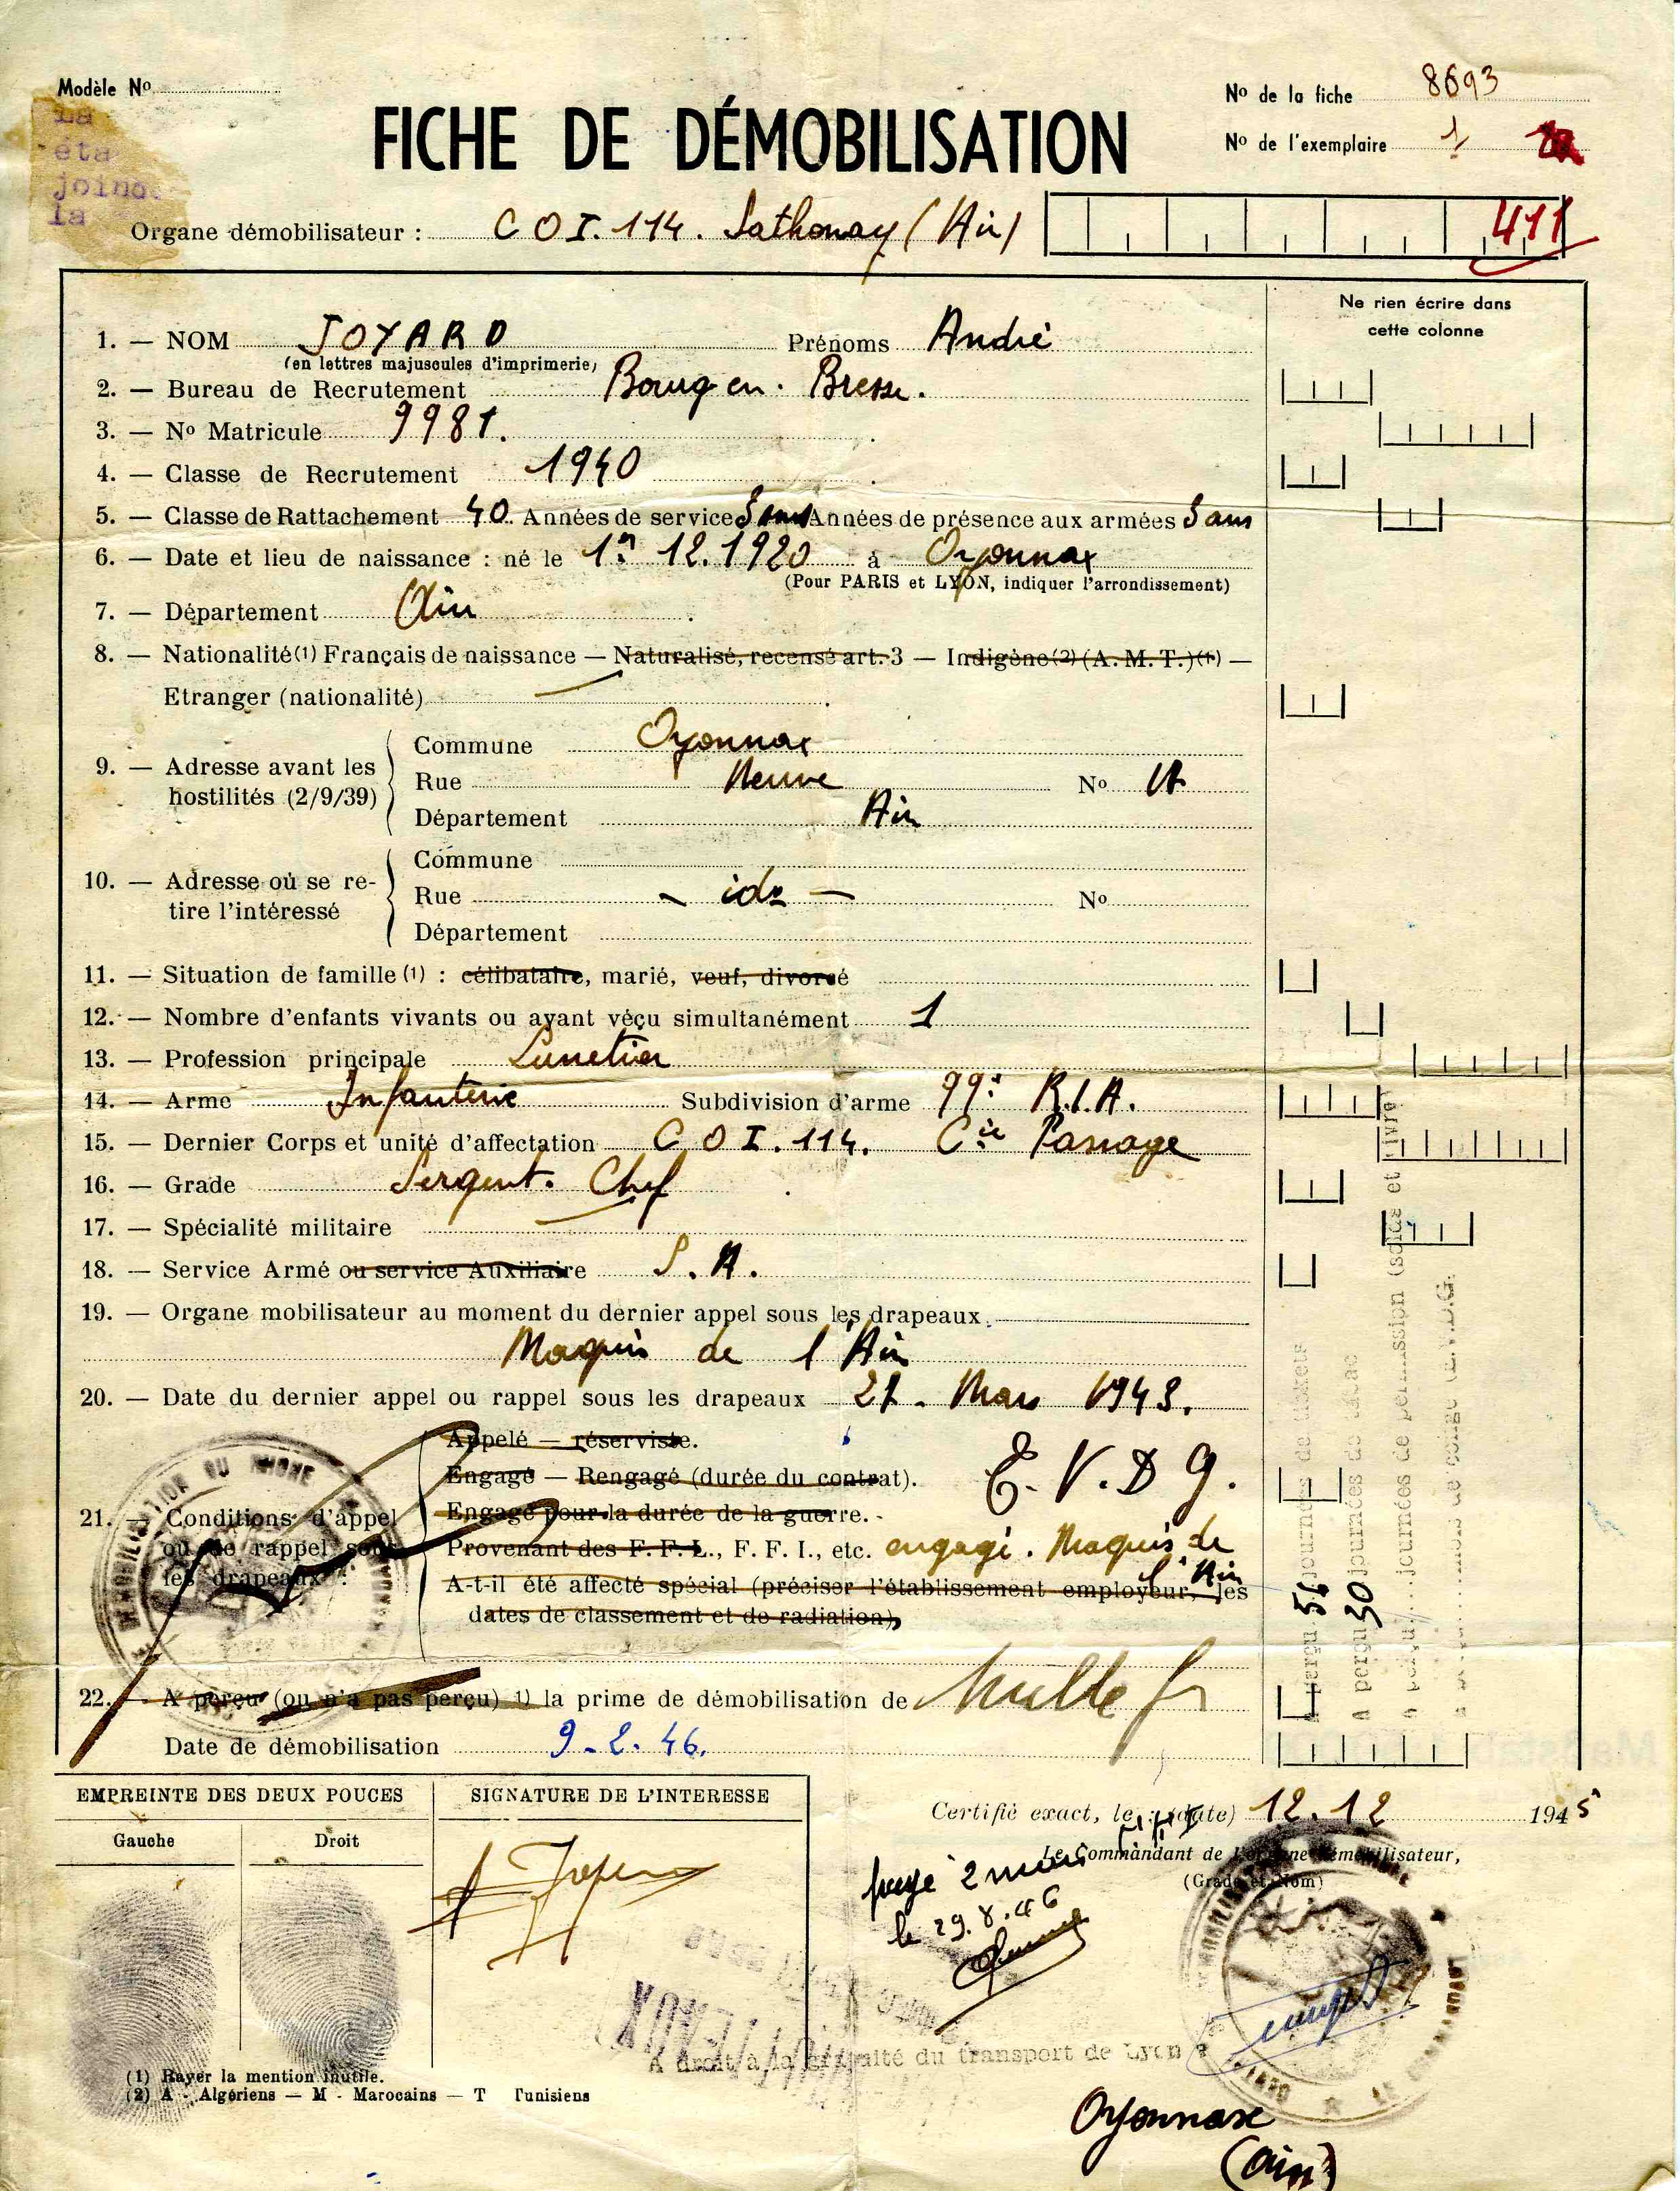 Modèle No
No de la fiche 8693
La
FICHE DE DÉMOBILISATION
No de l'exemplaire 1
éta
joind
la
Organe démobilisateur : C O I. 114. Sathonay (Ain)
411
Ne rien écrire dans
cette colonne
1. — NOM JOYARD Prénoms André
(en lettres majuscules d'imprimerie)
2. — Bureau de Recrutement Bourg en. Bresse.
3. — No Matricule 9981.
4. — Classe de Recrutement 1940
5. — Classe de Rattachement 40. Années de service 3 ans Années de présence aux armées 3 ans
6. — Date et lieu de naissance : né le 1er 12.1920 à Oyonnax
(Pour PARIS et LYON, indiquer l'arrondissement)
7. — Département Ain
8. — Nationalité (1) Français de naissance — Naturalisé, recensé art. 3 — Indigène (2) (A. M. T.) (1) —
Etranger (nationalité)
9. — Adresse avant les hostilités (2/9/39)
Commune Oyonnax
Rue Neuve No
Département Ain
10. — Adresse où se re-
tire l'intéressé
Commune
Rue — id — No
Département
11. — Situation de famille (1) : célibataire, marié, veuf, divorcé
12. — Nombre d'enfants vivants ou ayant vécu simultanément 1
13. — Profession principale Lunetier
14. — Arme Infanterie Subdivision d'arme 99e R.I.A.
15. — Dernier Corps et unité d'affectation C O I. 114. Cie Passage
16. — Grade Sergent. Chef
17. — Spécialité militaire
18. — Service Armé ou service Auxiliaire S. A.
19. — Organe mobilisateur au moment du dernier appel sous les drapeaux
Maquis de l'Ain
20. — Date du dernier appel ou rappel sous les drapeaux 21. Mars 1943.
21. — Conditions d'appel
ou de rappel sous
les drapeaux :
Appelé — réserviste.
Engagé — Rengagé (durée du contrat). E. V. D G.
Engagé pour la durée de la guerre.
Provenant des F. F. L., F. F. I., etc. engagé. Maquis de
l'Ain
A-t-il été affecté spécial (préciser l'établissement employeur, les
dates de classement et de radiation),
22. — A perçu (ou n'a pas perçu) 1) la prime de démobilisation de Mille fr
Date de démobilisation 9-2. 46.
A perçu 56 journées de
A perçu 30 journées de tabac
journées de permission (solde et
mois de congé E.V.D.G.
EMPREINTE DES DEUX POUCES
Gauche Droit
SIGNATURE DE L'INTERESSE
Certifié exact, le : (date) 12.12 1945
Le Commandant de l'Organe démobilisateur,
(Grade et Nom)
payé 2 mois
le 29.8.46
A droit à la gratuité du transport de Lyon à
Oyonnax
(Ain)
(1) Rayer la mention inutile.
(2) A - Algériens — M - Marocains — T Tunisiens